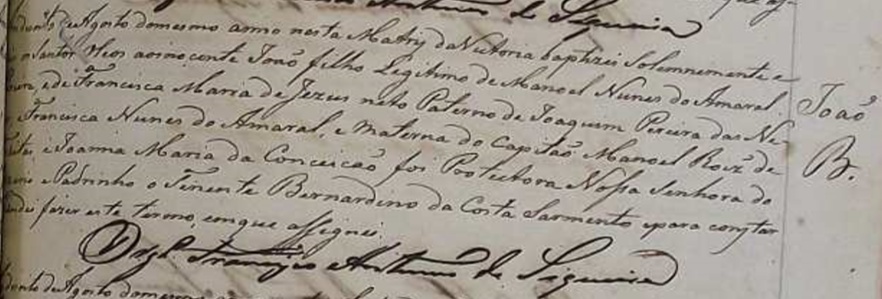 Antonio de Siqueira
de Agosto domesmo anno nesta Matriz da Victoria baptizei Solemnemente e
os Santos Oleos ao inocente João filho Legitimo de Manoel Nunes do Amaral
e de Francisca Maria de Jezus neto Paterno de Joaquim Pereira das Ne-
Francisca Nunes do Amaral, e Materna do Capitão Manoel Roiz de
e Joanna Maria da Conceicão foi Protectora Nossa Senhora do
e Padrinho o Tenente Bernardino da Costa Sarmento epara constar
fazer este termo, emque assignei.
Francisco Antonio de Siqueira
de Agosto domesmo
João
B.